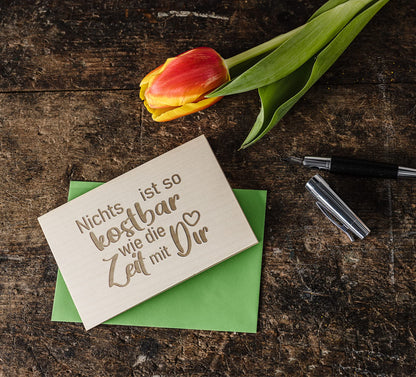 Nichts ist so
kostbar
wie die
Zeit mit Dir